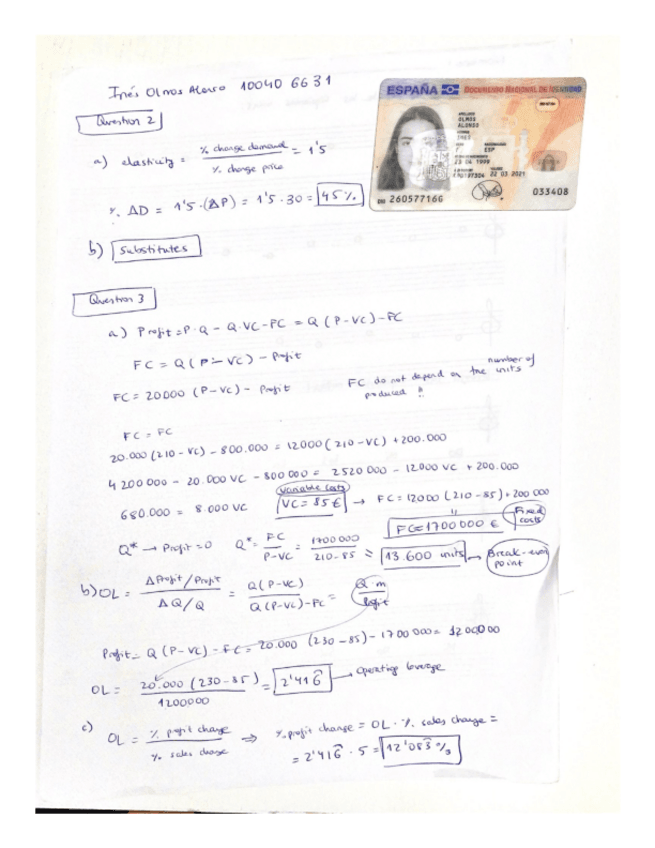 Inés Olmos Alonso 10040 6631
ESPAÑA DOCUMENTO NACIONAL DE IDENTIDAD
APELLIDOS
OLMOS
ALONSO
NOMBRE
INES
F ESP
22 03 2021
033408
DNI 26057716G
Question 2
a) elasticity = % change demand / % change price = 1'5
%. ΔD = 1'5·(ΔP) = 1'5·30 = 45%
b) Substitutes
Question 3
a) Profit = P·Q - Q·VC - FC = Q (P-VC) - FC
FC = Q (P - VC) - Profit
FC = 20000 (P-VC) - Profit
FC do not depend on the number of units produced !!
FC = FC
20.000 (210 - VC) - 800.000 = 12000 (210 - VC) + 200.000
4 200 000 - 20.000 VC - 800 000 = 2520 000 - 12000 VC + 200.000
variable costs
680.000 = 8.000 VC VC = 85 € → FC = 12000 (210-85) + 200 000
FC = 1700 000 € Fixed costs
Q* → Profit = 0 Q* = FC / P-VC = 1700 000 / 210-85 = 13.600 units → Break-even point
b) OL = ΔProfit/Profit / ΔQ/Q = Q(P-VC) / Q(P-VC)-FC = Q·m / Profit
Profit = Q (P-VC) - FC = 20.000 (230-85) - 1700 000 = 1200000
OL = 20.000 (230-85) / 1200000 = 2'416 → Operating leverage
c) OL = % profit change / % sales change ⇒ %. profit change = OL · %. sales change =
= 2'416 · 5 = 12'083 %